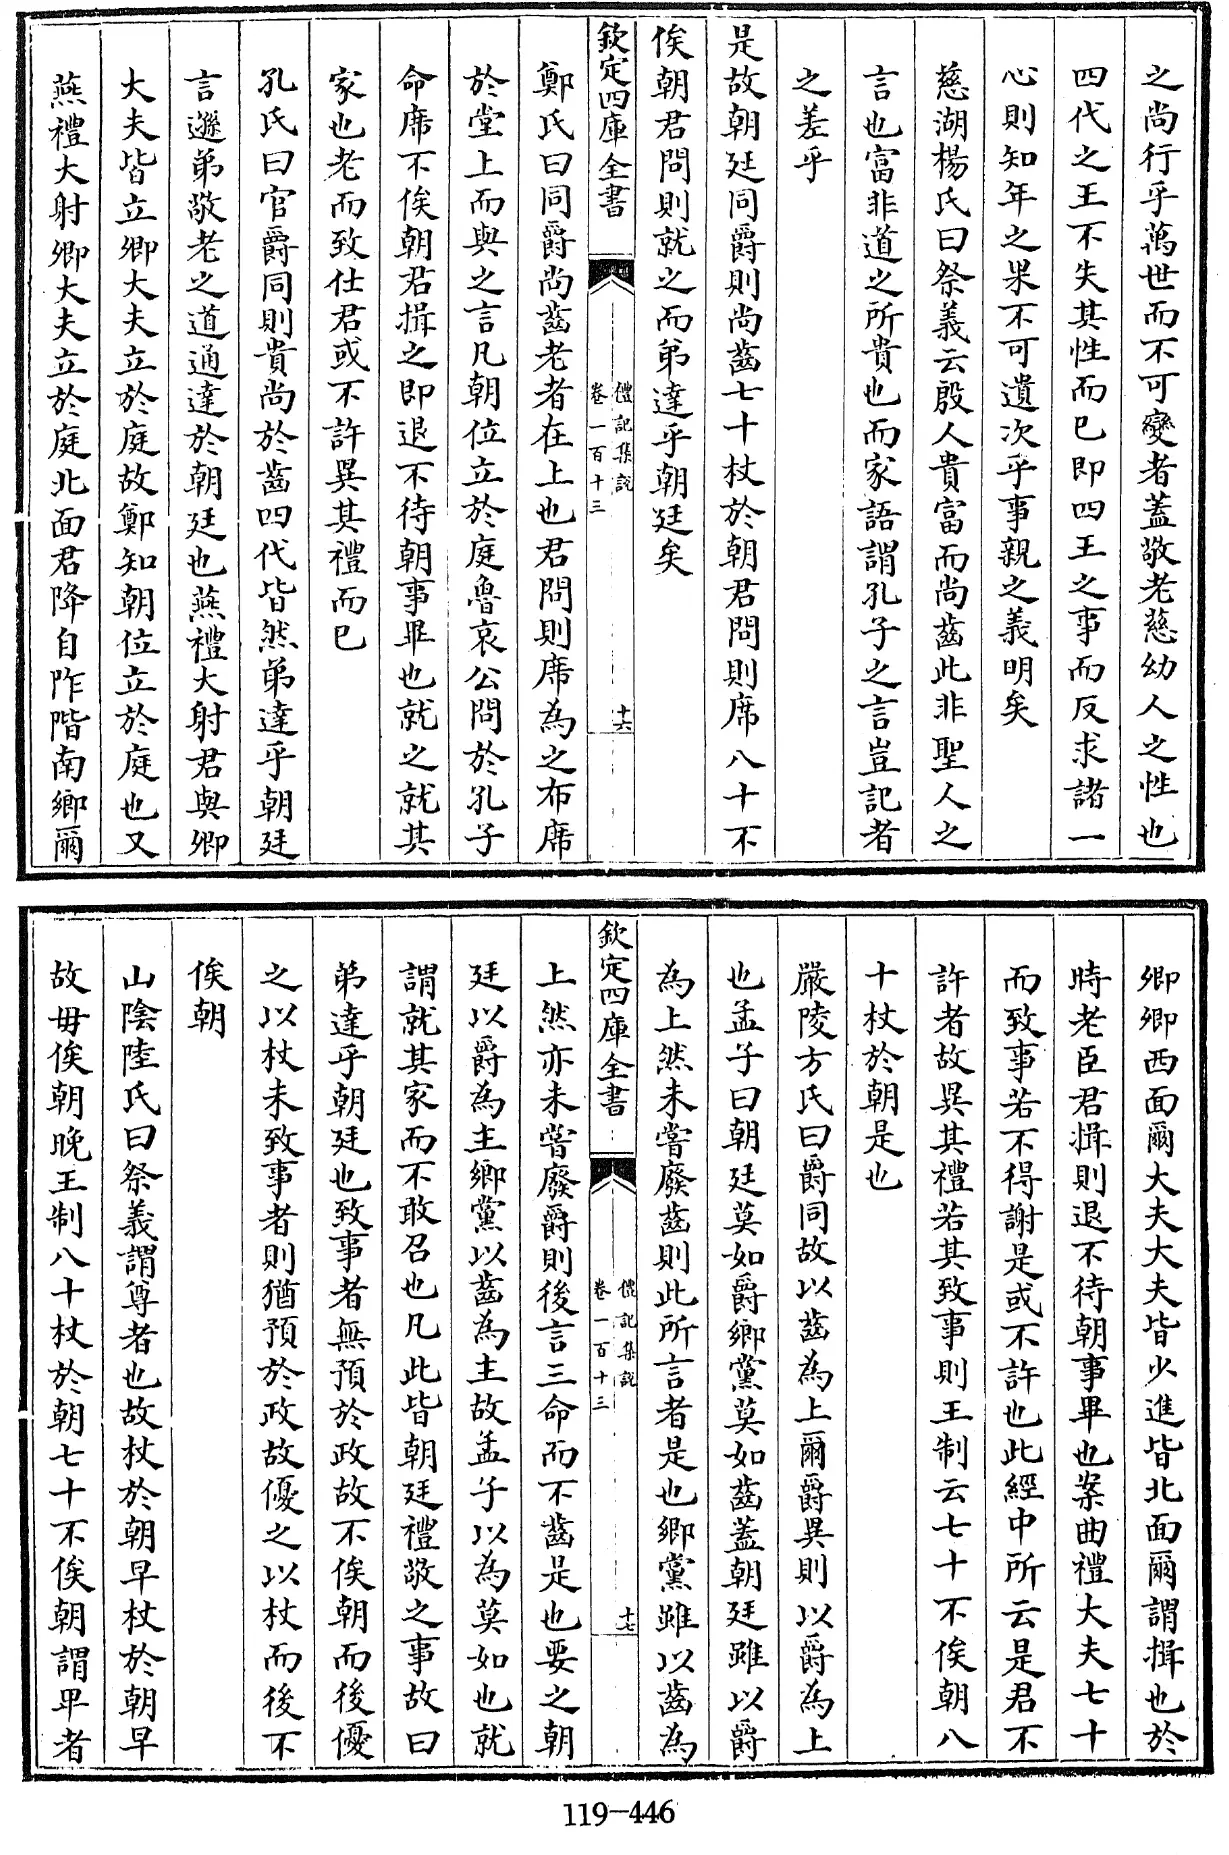 之尚行乎萬世而不可變者蓋敬老慈幼人之性也
四代之王不失其性而已即四王之事而反求諸一
心則知年之果不可遺次乎事親之義明矣
慈湖楊氏曰祭義云殷人貴富而尚齒此非聖人之
言也富非道之所貴也而家語謂孔子之言豈記者
之差乎
是故朝廷同爵則尚齒七十杖於朝君問則席八十不
俟朝君問則就之而弟達乎朝廷矣
欽定四庫全書
禮記集說
卷一百十三
十六
鄭氏曰同爵尚齒老者在上也君問則席為之布席
於堂上而與之言凡朝位立於庭魯哀公問於孔子
命席不俟朝君揖之即退不待朝事畢也就之就其
家也老而致仕君或不許異其禮而已
孔氏曰官爵同則貴尚於齒四代皆然弟達乎朝廷
言遜弟敬老之道通達於朝廷也燕禮大射君與卿
大夫皆立卿大夫立於庭故鄭知朝位立於庭也又
燕禮大射卿大夫立於庭北面君降自阼階南鄉爾
卿卿西面爾大夫大夫皆少進皆北面爾謂揖也於
時老臣君揖則退不待朝事畢也案曲禮大夫七十
而致事若不得謝是或不許也此經中所云是君不
許者故異其禮若其致事則王制云七十不俟朝八
十杖於朝是也
嚴陵方氏曰爵同故以齒為上爾爵異則以爵為上
也孟子曰朝廷莫如爵鄉黨莫如齒蓋朝廷雖以爵
為上然未嘗廢齒則此所言者是也鄉黨雖以齒為
欽定四庫全書
禮記集說
卷一百十三
十七
上然亦未嘗廢爵則後言三命而不齒是也要之朝
廷以爵為主鄉黨以齒為主故孟子以為莫如也就
謂就其家而不敢召也凡此皆朝廷禮敬之事故曰
弟達乎朝廷也致事者無預於政故不俟朝而後優
之以杖未致事者則猶預於政故優之以杖而後不
俟朝
山陰陸氏曰祭義謂尊者也故杖於朝早杖於朝早
故毋俟朝晚王制八十杖於朝七十不俟朝謂卑者
119-446